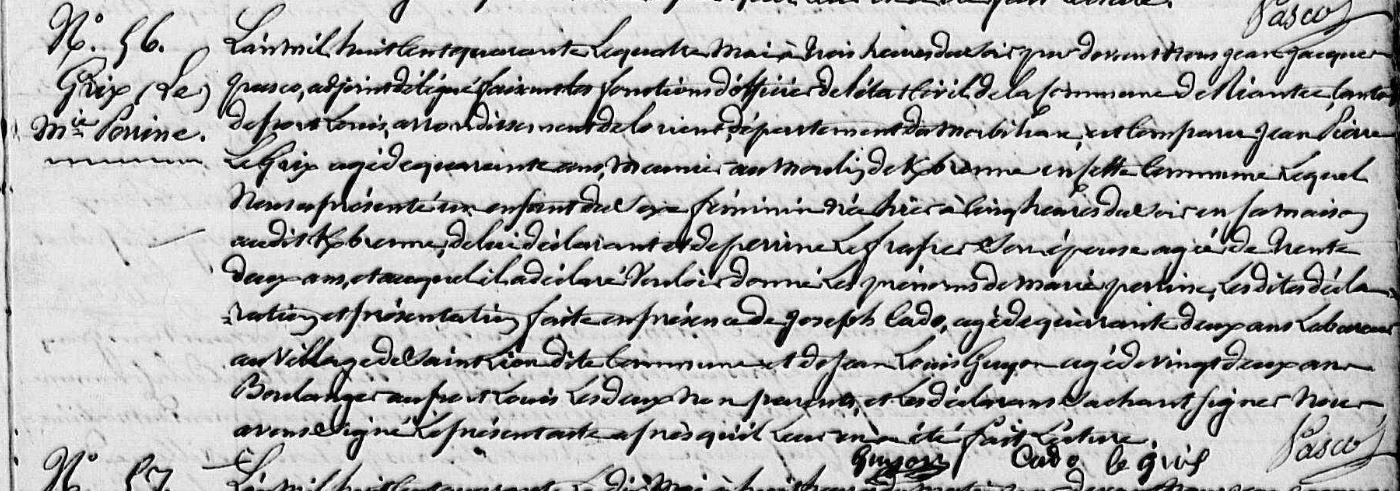 Pasco
N.° 56.
Grix (Le)
Mie Perrine.
L'an mil huit cent quarante Le quatre Mai à trois heures du soir par devant Nous Jean Jacques
pasco, adjoint délégué faisant les fonctions d'officier de l'état Civil de la Commune de Riantec, Canton
de port Louis, arrondissement de Lorient, département du Morbihan, est Comparu Jean Pierre
Le Grix agé de quarante ans, Meunier au Moulin de en sette Commune Lequel
Nous a présenté un enfant du Sexe féminin Né hier à Cinq heures du soir en sa maison
audit de lui déclarant et de perrine Le Son épouse agée de trente
deux ans, et auquel il a déclaré vouloir donné Les prénoms de marie perrine, Les dites décla
ration et présentation faite en présence de Joseph Cado, agé de quarante deux ans Laboureur
au Village de Saint Léon dite Commune et de Jean Louis Guyon agé de vingt deux ans
Boulanger au port Louis Les deux Non parents, et Les déclarans Sachant signer Nous
avons Signé Le présent acte après qu'il Leur en a été fait Lecture.
Guyon Cado le gris Pasco
N.° 57
L'an mil huit cent quarante Le dix Mai à